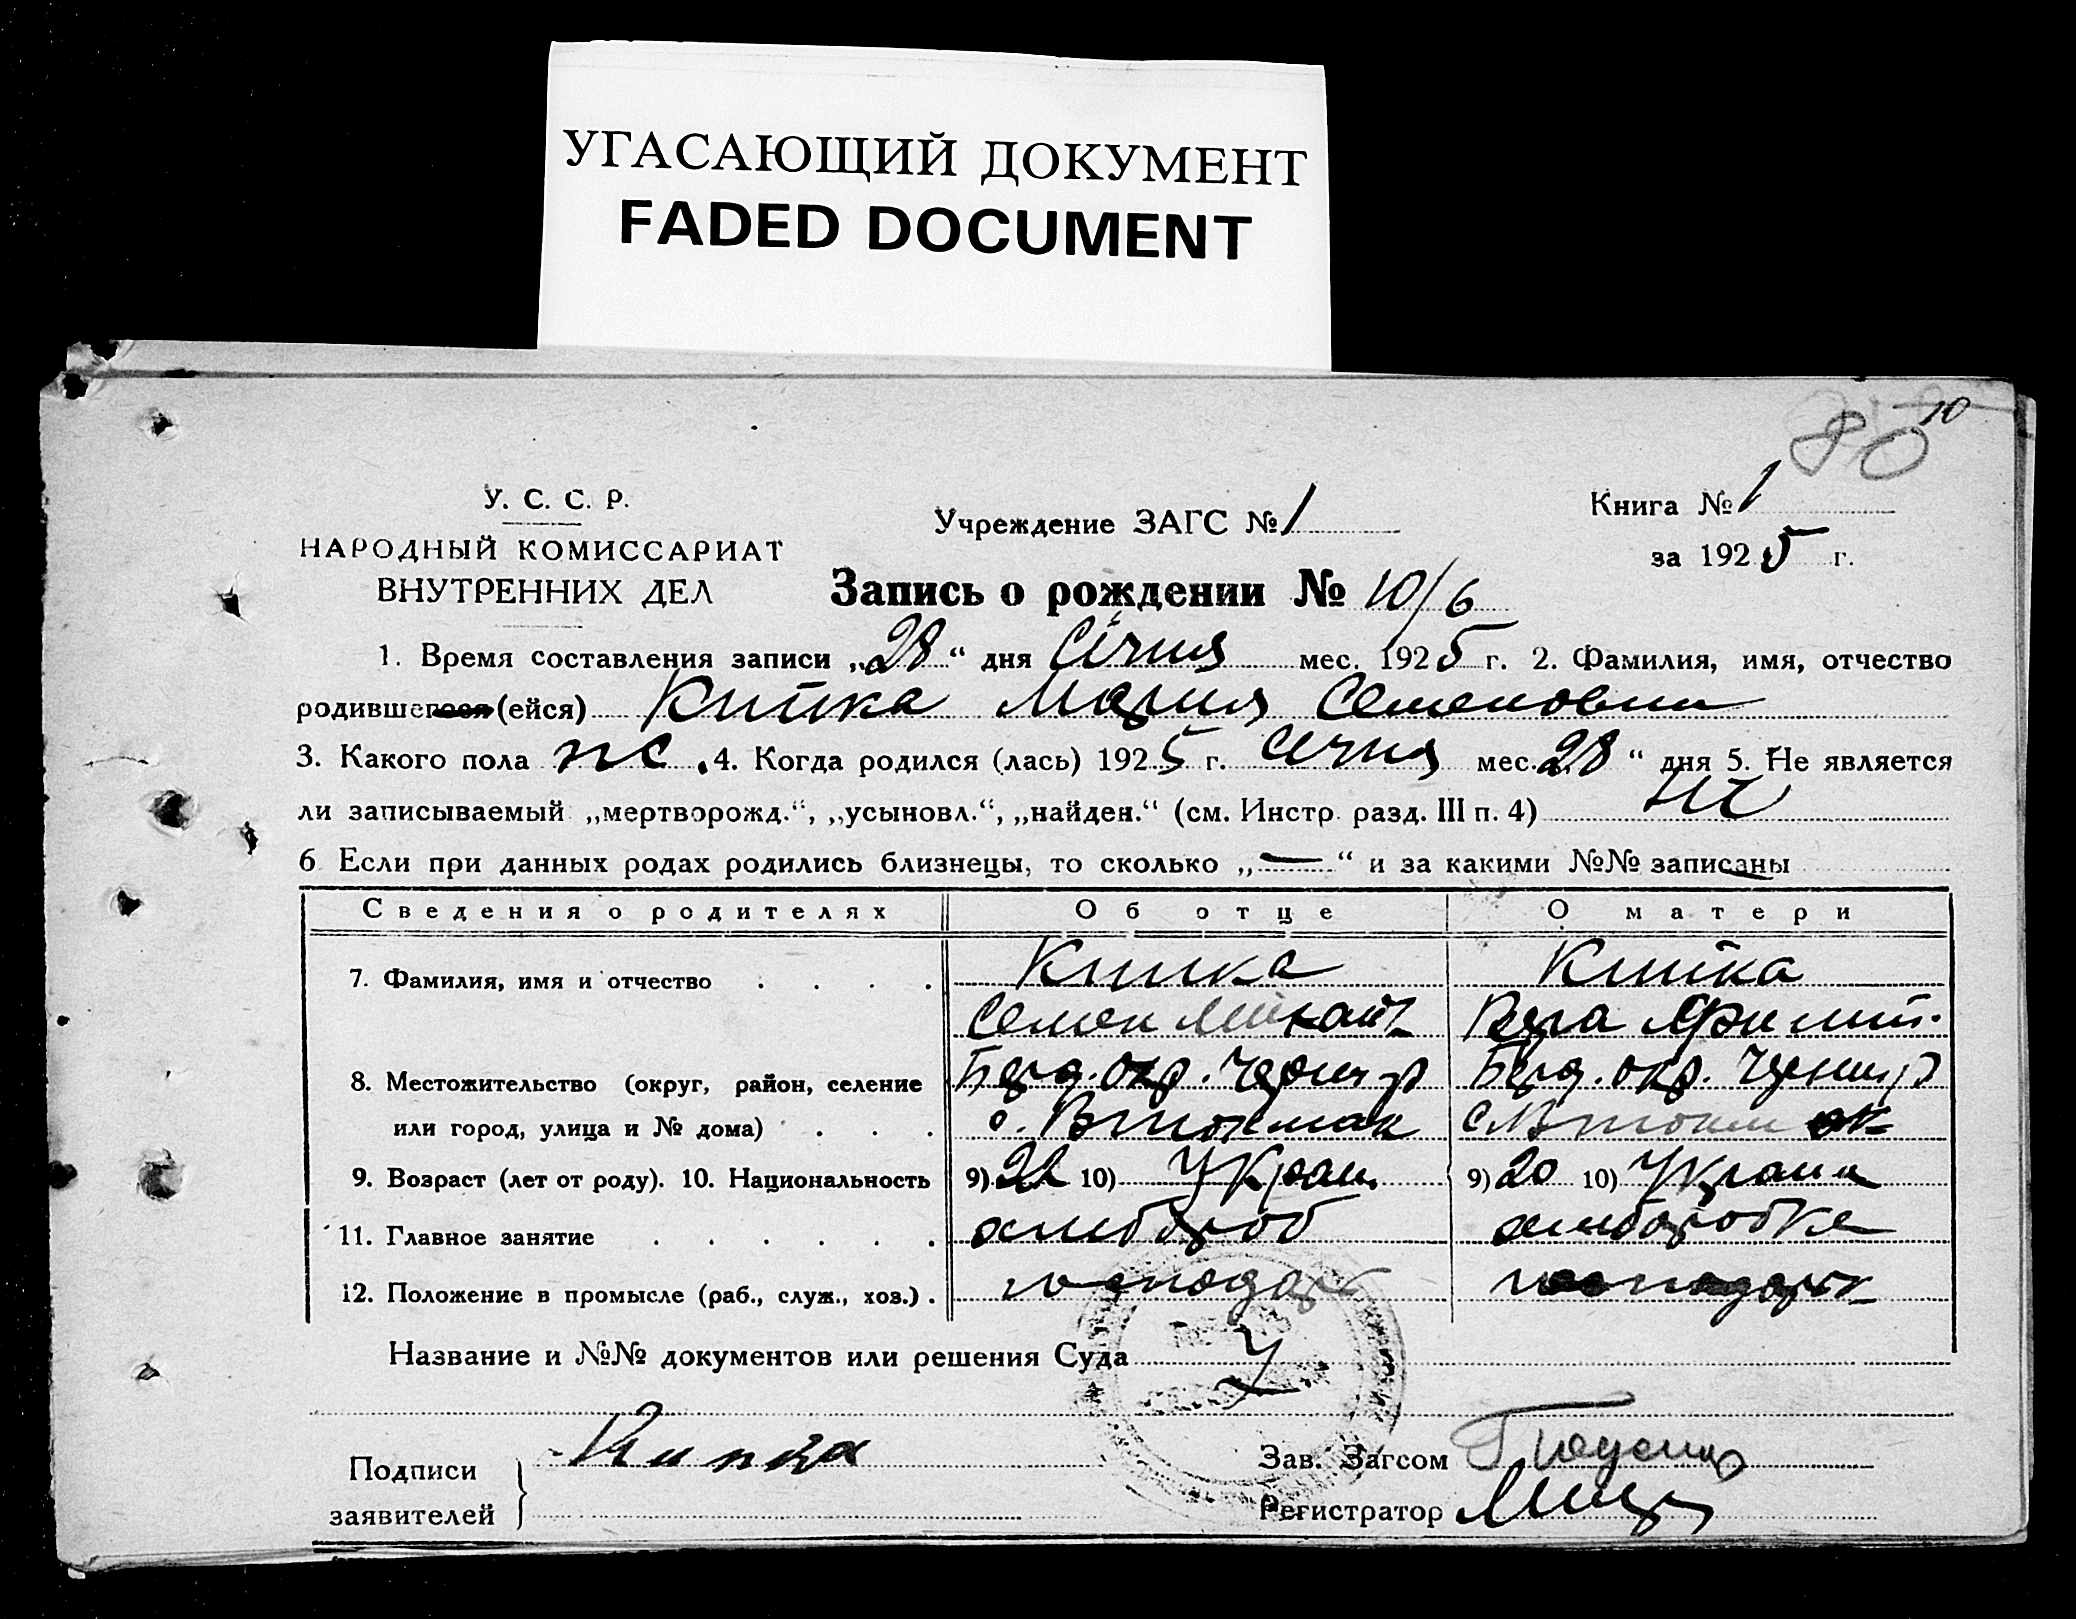 УГАСАЮЩИЙ ДОКУМЕНТ
FADED DOCUMENT
10
80
У. С. С. Р.
НАРОДНЫЙ КОМИССАРИАТ
ВНУТРЕННИХ ДЕЛ
Учреждение ЗАГС № 1
Книга № 1
за 1925 г.
Запись о рождении № 10/6
1. Время составления записи „28“ дня Січня мес. 1925 г. 2. Фамилия, имя, отчество
родившегося (ейся) Китка Мария Семеновни
3. Какого пола жс. 4. Когда родился (лась) 1925 г. Січня мес. 28 “ дня 5. Не является
ли записываемый „мертворожд.“, „усыновл.“, „найден.“ (см. Инстр. разд. III п. 4) Ні
6 Если при данных родах родились близнецы, то сколько „—“ и за какими №№ записаны —
Сведения о родителях Об отце О матери
7. Фамилия, имя и отчество Китка Китка
Семен Вера
8. Местожительство (округ, район, селение Берд. окр. Берд. окр.
или город, улица и № дома) с. Втокмак с. Втокмак
9. Возраст (лет от роду). 10. Национальность 9) 22 10) Украин. 9) 20 10) Украин
11. Главное занятие хлибороб хлиборобка
12. Положение в промысле (раб., служ., хоз.) господар
Название и №№ документов или решения Суда
Подписи Китка Зав. Загсом
заявителей Регистратор